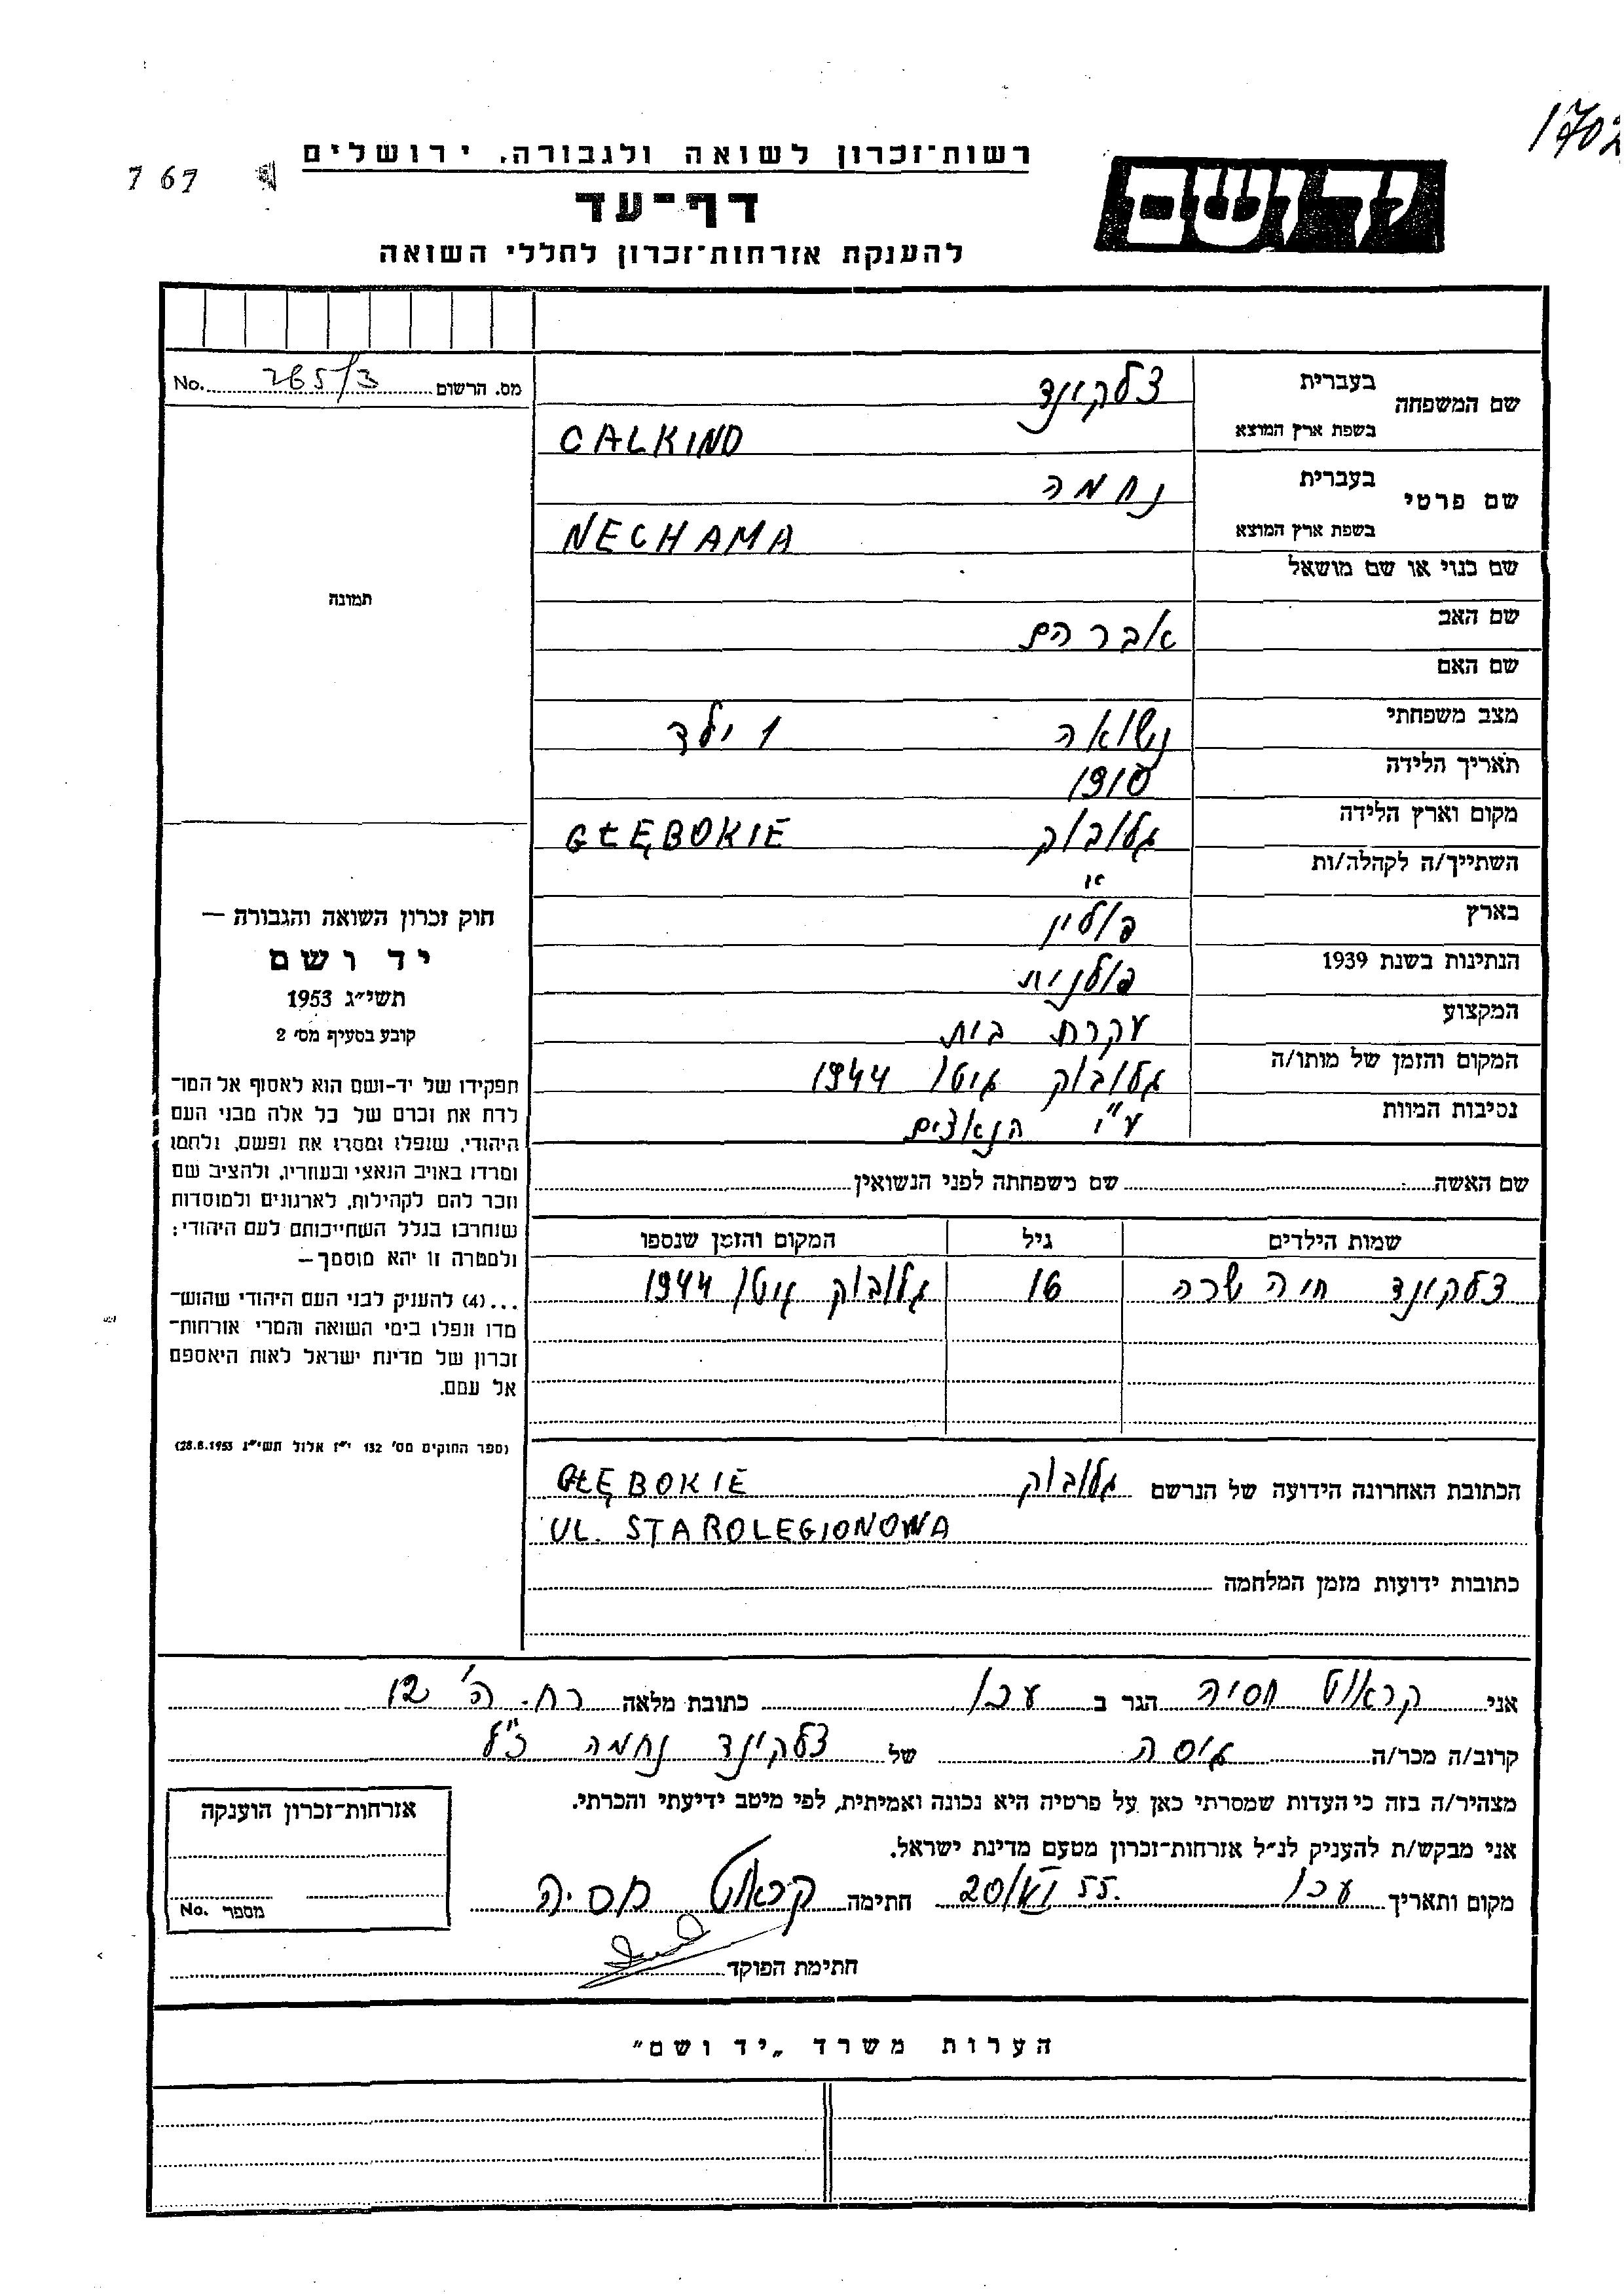 1702
רשות־זכרון לשואה ולגבורה, ירושלים
7 67
יד ושם
דף־עד
להענקת אזרחות־זכרון לחללי השואה
מס. הרשום 265/3 No.
שם המשפחה
בעברית צלקינד
בשפת ארץ המוצא CALKIND
שם פרטי
בעברית נחמה
בשפת ארץ המוצא NECHAMA
שם כנוי או שם מושאל
שם האב אברהם
שם האם
מצב משפחתי נשואה 1 ילד
תאריך הלידה 1910
מקום וארץ הלידה גלובוק GŁĘBOKIE
השתייך/ה לקהלה/ות "
בארץ פולין
הנתינות בשנת 1939 פולנית
המקצוע עקרת בית
המקום והזמן של מותו/ה גלובוק גיטו 1944
נסיבות המוות ע"י הנאצים
שם האשה שם משפחתה לפני הנשואין
שמות הילדים גיל המקום והזמן שנספו
צלקינד חיה שרה 16 גלובוק גיטו 1944
הכתובת האחרונה הידועה של הנרשם גלובוק GŁĘBOKIE
UL. STAROLEGIONOWA
כתובות ידועות מזמן המלחמה
תמונה
חוק זכרון השואה והגבורה —
יד ושם
תשי״ג 1953
קובע בסעיף מס׳ 2
תפקידו של יד-ושם הוא לאסוף אל המו־
לדת את זכרם של כל אלה מבני העם
היהודי, שנפלו ומסרו את נפשם, נלחמו
ומרדו באויב הנאצי ובעוזריו, ולהציב שם
וזכר להם לקהילות, לארגונים ולמוסדות
שנחרבו בגלל השתייכותם לעם היהודי;
ולמטרה זו יהא מוסמך —
...(4) להעניק לבני העם היהודי שהוש־
מדו ונפלו בימי השואה והמרי אזרחות־
זכרון של מדינת ישראל לאות היאספם
אל עמם.
(ספר החוקים מס׳ 132 י״ז אלול תשי״ג 28.8.1953)
אני קראוט חסיה הגר ב עכו כתובת מלאה רח. ה' 12
קרוב/ה מכר/ה גיסה של צלקינד נחמה ז"ל
מצהיר/ה בזה כי העדות שמסרתי כאן על פרטיה היא נכונה ואמיתית, לפי מיטב ידיעתי והכרתי.
אני מבקש/ת להעניק לנ״ל אזרחות־זכרון מטעם מדינת ישראל.
מקום ותאריך עכו 20/VI 55. חתימה קראוט חסיה
חתימת הפוקד
אזרחות־זכרון הוענקה
מספר No.
הערות משרד „יד ושם״